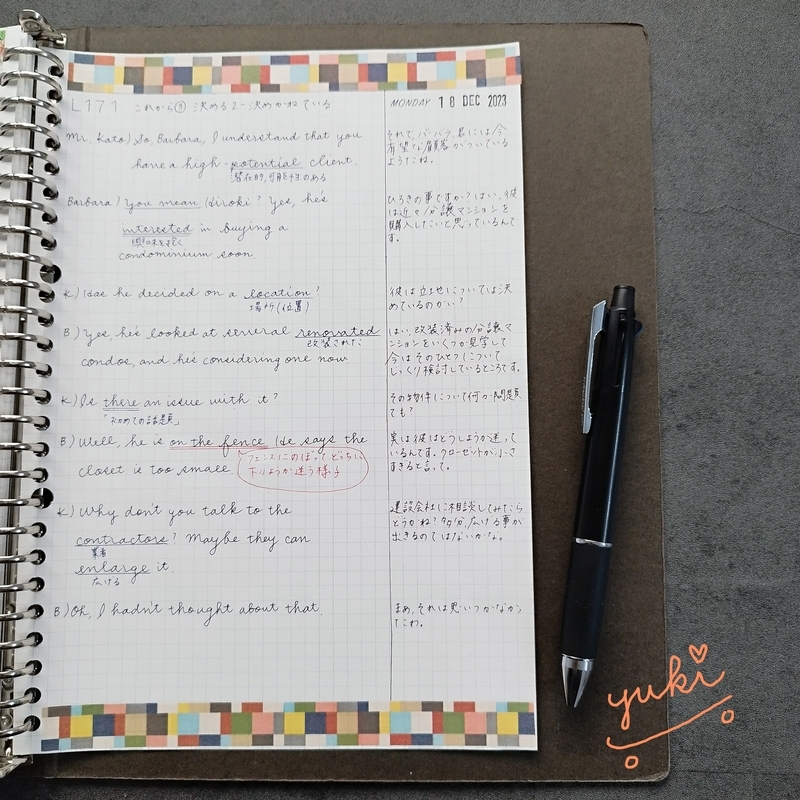 L171 これから③ 決める2-決めかねている
MONDAY 18 DEC 2023
Mr. Kato) So, Barbara, I understand that you
have a high-potential client.
潜在的,可能性のある
それで、バーバラ、君には今
有望な顧客がついている
ようだね。
Barbara) You mean Hiroki? Yes, he's
interested in buying a
興味を抱く
condominium soon
ひろきの事ですか?はい、彼
は近々分譲マンションを
購入したいと思っているんで
す。
K) Has he decided on a location?
場所(位置)
彼は立地については決
めているのかい?
B) Yes, he's looked at several renovated
改装された
condos, and he's considering one now
はい、改装済みの分譲マ
ンションをいくつか見学して
今はそのひとつについて
じっくり検討しているところです。
K) Is there an issue with it?
"初めての話題"
その物件について何か問題
でも?
B) Well, he is on the fence He says the
closet is too small
フェンスにのぼってどっちに
下りようか迷う様子
実は彼はどうしようか迷って
いるんです。クローゼットが小さ
すぎると言って。
K) Why don't you talk to the
contractors? Maybe they can
業者
enlarge it.
広げる
建設会社に相談してみたら
どうかね?多分、広げる事が
出来るのではないかな。
B) Oh, I hadn't thought about that.
まあ、それは思いつかなかっ
たわ。
yuki